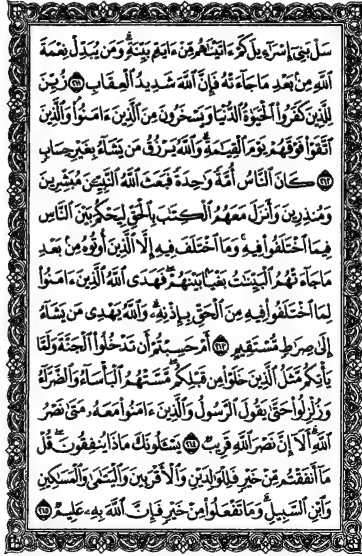 سَلْ بَنِىٓ إِسْرَٰٓءِيلَ كَمْ ءَاتَيْنَٰهُم مِّنْ ءَايَةٍۭ بَيِّنَةٍۗ وَمَن يُبَدِّلْ نِعْمَةَ
ٱللَّهِ مِنۢ بَعْدِ مَا جَآءَتْهُ فَإِنَّ ٱللَّهَ شَدِيدُ ٱلْعِقَابِ ٢١١ زُيِّنَ
لِلَّذِينَ كَفَرُوا۟ ٱلْحَيَوٰةُ ٱلدُّنْيَا وَيَسْخَرُونَ مِنَ ٱلَّذِينَ ءَامَنُوا۟ۘ وَٱلَّذِينَ
ٱتَّقَوْا۟ فَوْقَهُمْ يَوْمَ ٱلْقِيَٰمَةِۗ وَٱللَّهُ يَرْزُقُ مَن يَشَآءُ بِغَيْرِ حِسَابٍ
٢١٢ كَانَ ٱلنَّاسُ أُمَّةً وَٰحِدَةً فَبَعَثَ ٱللَّهُ ٱلنَّبِيِّـۧنَ مُبَشِّرِينَ
وَمُنذِرِينَ وَأَنزَلَ مَعَهُمُ ٱلْكِتَٰبَ بِٱلْحَقِّ لِيَحْكُمَ بَيْنَ ٱلنَّاسِ
فِيمَا ٱخْتَلَفُوا۟ فِيهِۚ وَمَا ٱخْتَلَفَ فِيهِ إِلَّا ٱلَّذِينَ أُوتُوهُ مِنۢ بَعْدِ
مَا جَآءَتْهُمُ ٱلْبَيِّنَٰتُ بَغْيًۢا بَيْنَهُمْۖ فَهَدَى ٱللَّهُ ٱلَّذِينَ ءَامَنُوا۟
لِمَا ٱخْتَلَفُوا۟ فِيهِ مِنَ ٱلْحَقِّ بِإِذْنِهِۦۗ وَٱللَّهُ يَهْدِى مَن يَشَآءُ
إِلَىٰ صِرَٰطٍ مُّسْتَقِيمٍ ٢١٣ أَمْ حَسِبْتُمْ أَن تَدْخُلُوا۟ ٱلْجَنَّةَ وَلَمَّا
يَأْتِكُم مَّثَلُ ٱلَّذِينَ خَلَوْا۟ مِن قَبْلِكُمۖ مَّسَّتْهُمُ ٱلْبَأْسَآءُ وَٱلضَّرَّآءُ
وَزُلْزِلُوا۟ حَتَّىٰ يَقُولَ ٱلرَّسُولُ وَٱلَّذِينَ ءَامَنُوا۟ مَعَهُۥ مَتَىٰ نَصْرُ
ٱللَّهِۗ أَلَآ إِنَّ نَصْرَ ٱللَّهِ قَرِيبٌ ٢١٤ يَسْـَٔلُونَكَ مَاذَا يُنفِقُونَۖ قُلْ
مَآ أَنفَقْتُم مِّنْ خَيْرٍ فَلِلْوَٰلِدَيْنِ وَٱلْأَقْرَبِينَ وَٱلْيَتَٰمَىٰ وَٱلْمَسَٰكِينِ
وَٱبْنِ ٱلسَّبِيلِۗ وَمَا تَفْعَلُوا۟ مِنْ خَيْرٍ فَإِنَّ ٱللَّهَ بِهِۦ عَلِيمٌ ٢١٥